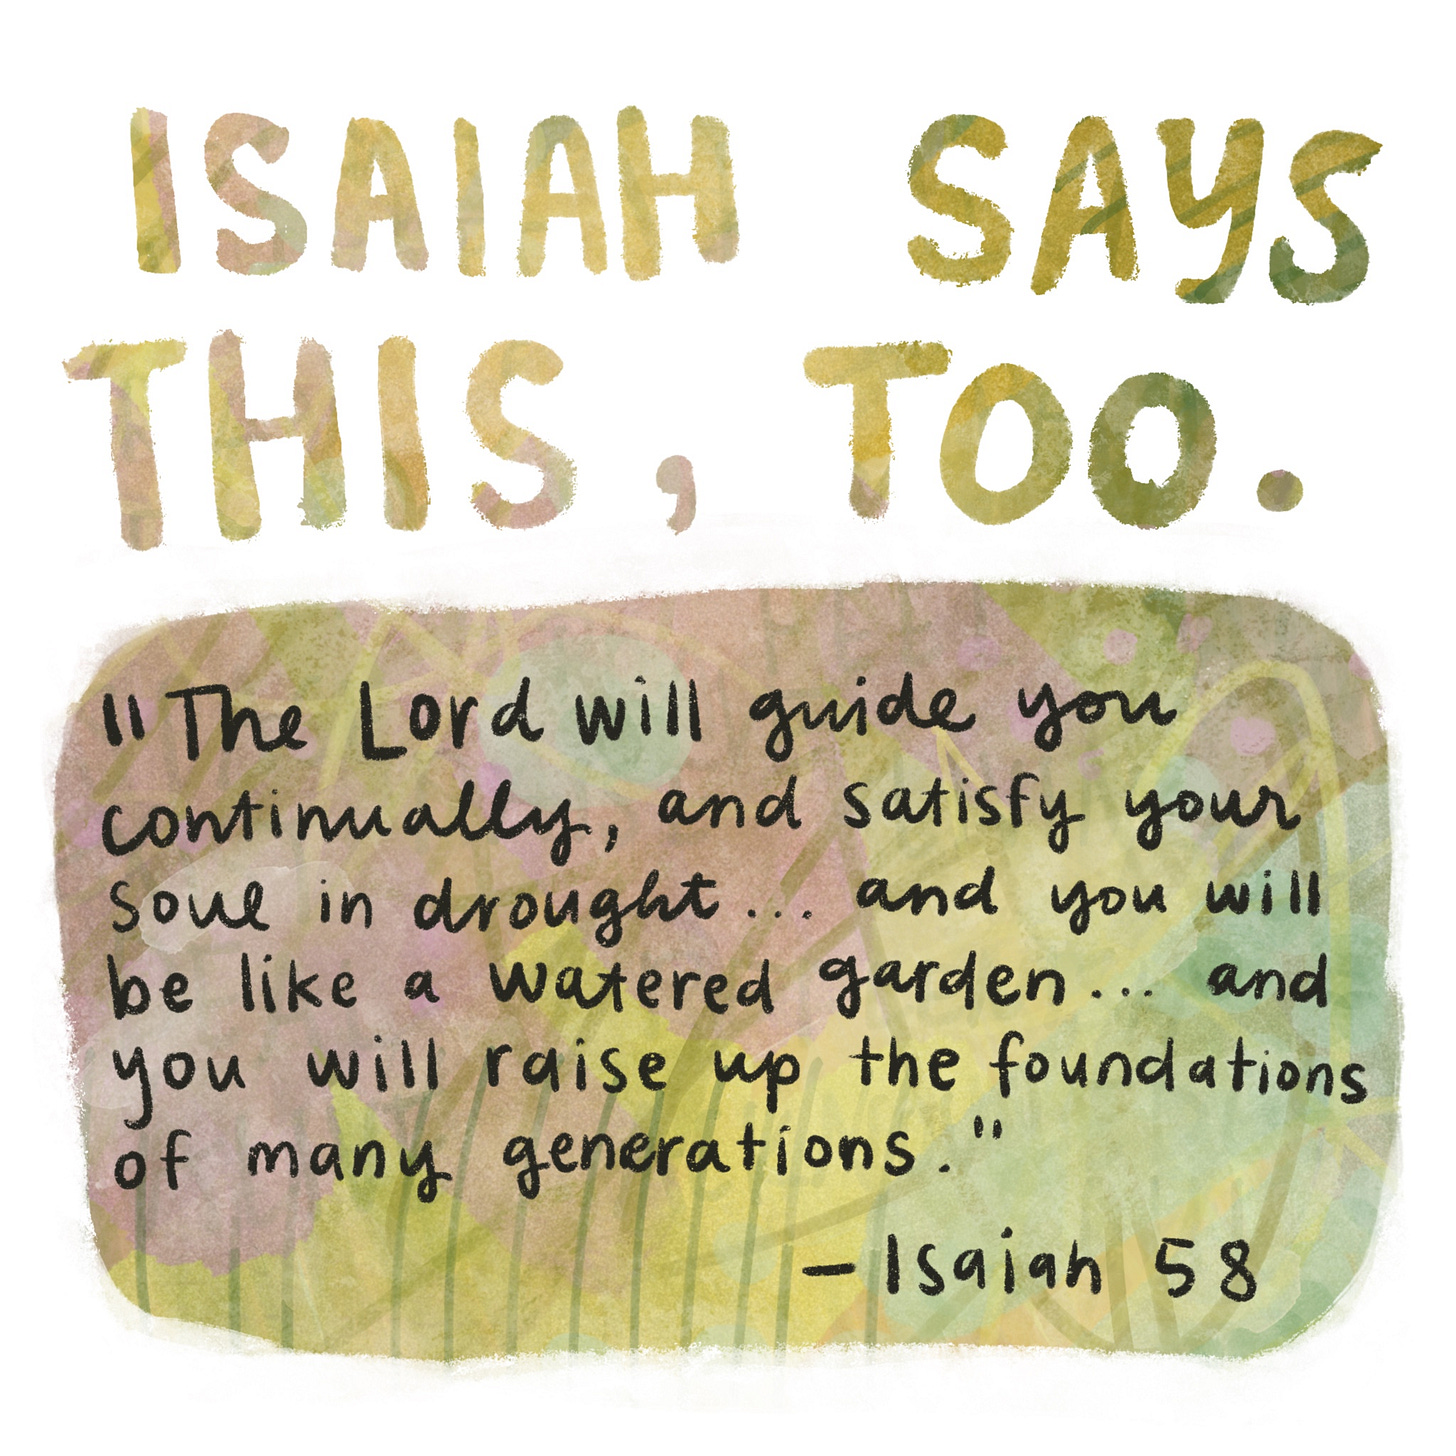 ISAIAH SAYS
THIS, TOO.
"The Lord will guide you
continually, and satisfy your
soul in drought... and you will
be like a watered garden... and
you will raise up the foundations
of many generations."
-Isaiah 58